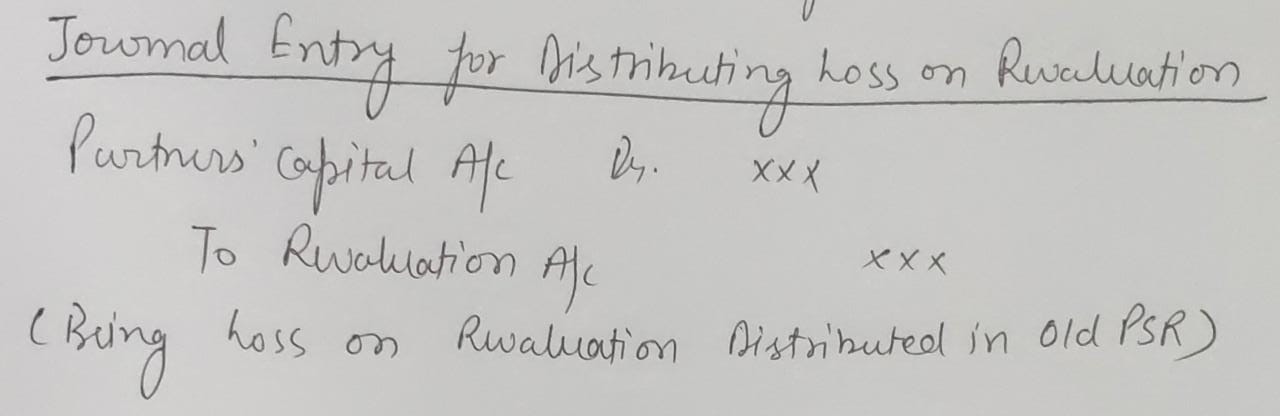 Journal Entry for Distributing Loss on Revaluation
Partners' Capital A/c Dr. xxx
To Revaluation A/c xxx
(Being Loss on Revaluation Distributed in Old PSR)